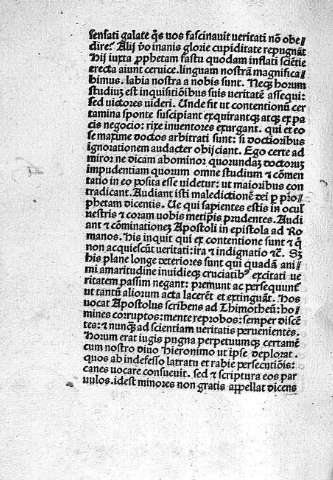 sensati galate q̃s vos fascinauit veritati nõ obe/
dire? Alij ꝟo inanis glorie cupiditate repugnãt
Hij iuxta ꝓphetam fastu quodam inflati sciẽtie
erecta aiunt ceruice. linguam nostrã magnifica
bimus. labia nostra a nobis sunt. Necꝫ horum
studiuꝫ est inquisitiõibus suis veritatẽ assequi:
sed victores videri. Unde fit ut contentionũ cer
tamina sponte suscipiant exquirantqꝫ atqꝫ ex pa
cis negocio: rixe inuentores exurgant. qui et eo
se maxime doctos arbitrati sunt: si doctioribus
ignorationem audacter obijciant. Ego certe ad
miror ne dicam abominor quorundaꝫ doctorũ
impudentiam quorum omne studium ⁊ cõmen
tatio in eo posita esse uidetur: ut maioribus con
tradicant. Audiant isti maledictionẽ dei ꝑ ꝓio
phetam dicentis. Ue qui sapientes estis in ocul
nestris ⁊ coram uobis metipis prudentes. Audi
ant ⁊ cõminationeꝫ Apostoli in epistola ad Ro
manos. His inquit qui ex contentione sunt ⁊ q̃
non acquiescũt veritati: ira ⁊ indignatio ⁊c̃. Sꝫ
his plane longe deteriores sunt qui quadã ani/
mi amaritudine inuidieqꝫ cruciatibꝰ excitati ue
ritatem passim negant: premunt ac persequunt᷑
ut tantũ aliorum acta lacerẽt et extinguãt. Hos
uocat Apostolus scribens ad Thimotheũ: ho/
mines corruptos: mente reprobos: semper discẽ
tes: ⁊ nunqꝫ ad scientiam veritatis peruenientes.
Horum erat iugis pugna perpetuumqꝫ certamẽ
cum nostro diuo Hieronimo ut ipse deplorat.
quos ab indefesso latratu et rabie persecutiõis:
canes uocare consueuit. sed ⁊ scriptura eos par
uulos. idest minores non gratis appellat dicens